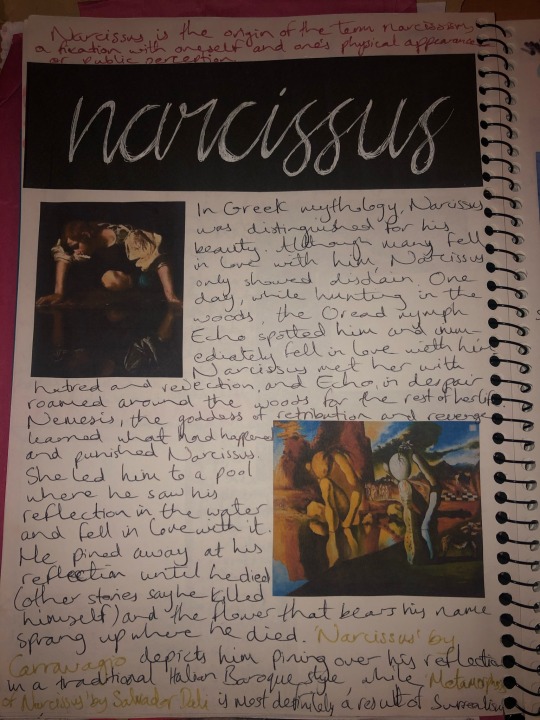 Narcissus, is the origin of the term narcissism,
a fixation with oneself and one's physical appearance
or public perception
narcissus
In Greek mythology, Narcissus
was distinguished for his
beauty. Although many fell
in love with him, Narcissus
only showed disdain. One
day, while hunting in the
woods, the Oread nymph
Echo spotted him and imm-
ediately fell in love with him.
Narcissus met her with
hatred and rejection, and Echo, in despair
roamed around the woods for the rest of her life.
Nemesis, the goddess of retribution and revenge
learned what had happened
and punished Narcissus.
She led him to a pool
where he saw his
reflection in the water
and fell in love with it.
He pined away at his
reflection until he died
(other stories say he killed
himself) and the flower that bears his name
sprang up where he died. 'Narcissus' by
Carravagio depicts him pining over his reflection
in a traditional Italian Baroque style while
of Narcissus' by Salvador Dali is most definitely a result of Surrealism